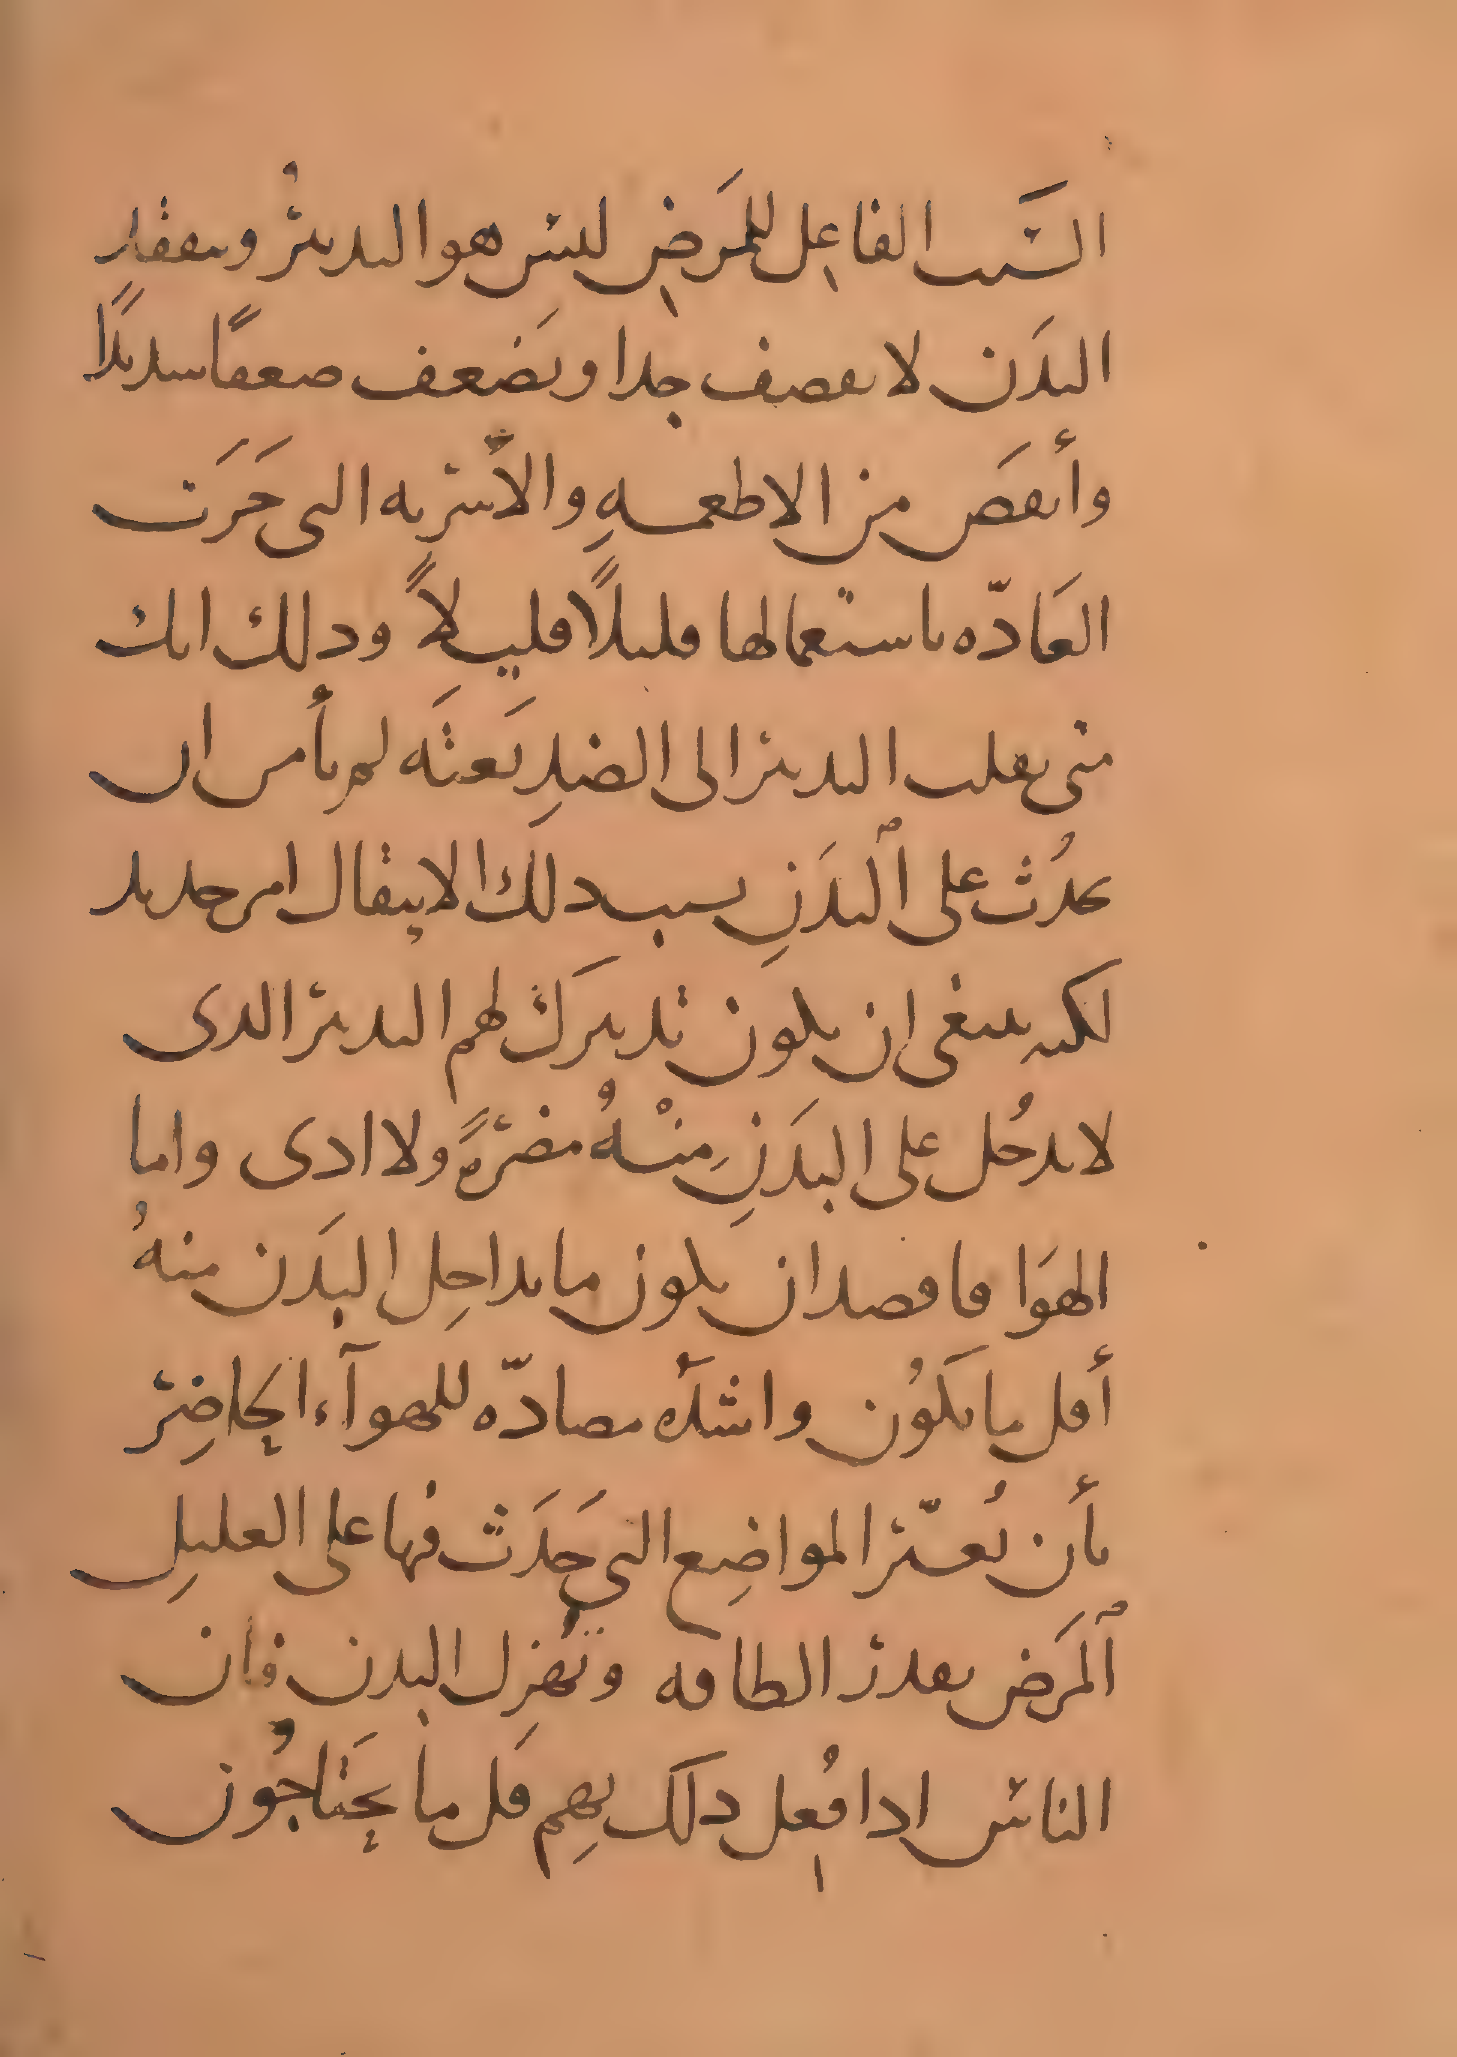 السَبب الفاعل للمَرض ليس هو التدبيرُ وبتفقد
البدَن لا يقصف جدا ويَضعف ضعفًا شديدًا
وأنقصَ من الاطعمهِ والاَشربه التى جَرَت
العَادّه باستعمالها قليلًا قليلاً وذلك انك
متى تقلب التدبير الى الضدِ بَغتَه لم يأمن ان
يحدُث على ٱلبدَنِ بسبب ذلك الانتقال امر حديد
لكنه ينبغى ان يكون تدبيرَك لهم التدبير الذى
لا يدخُل على البدَنِ مِنْهُ مضرّةً ولا اذى واما
الهوَا فاقصد ان يكون ما يداخِل البدَن منهُ
أقل ما يَكوُن واشدَّه مضادّه للهوآء الحاضِر
بأن يُغيّر المواضِع التي حَدَثَت فيها على العليلِ
ٱلمرَض بقدر الطاقه وتهزِل البدن فإن
الناس اذا فُعل ذلَك بهِم قَل ما يَحتاجُون